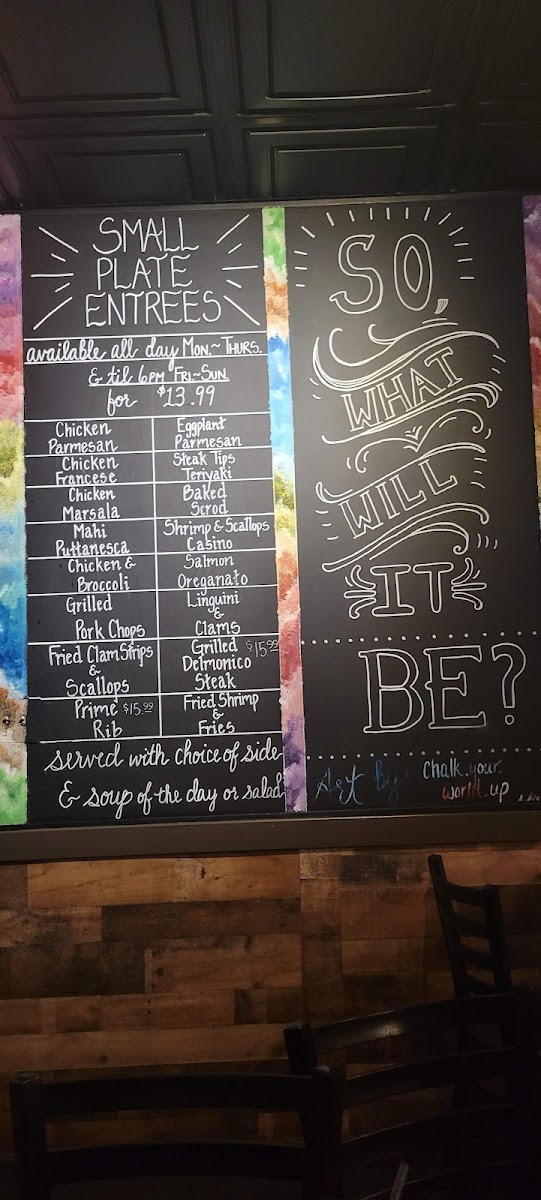 SMALL
PLATE
ENTREES
available all day MON.~THURS.
& til 6PM FRI~SUN.
for $13.99
Chicken
Parmesan
Eggplant
Parmesan
Chicken
Francese
Steak Tips
Teriyaki
Chicken
Marsala
Baked
Scrod
Mahi
Puttanesca
Shrimp & Scallops
Casino
Chicken &
Broccoli
Salmon
Oreganato
Grilled
Pork Chops
Linguini
&
Clams
Fried Clam Strips
&
Scallops
Grilled $15.99
Delmonico
Steak
Prime $15.99
Rib
Fried Shrimp
&
Fries
served with choice of side
& soup of the day or salad
SO,
WHAT
WILL
IT
BE?
Art by chalk.your.
world.up